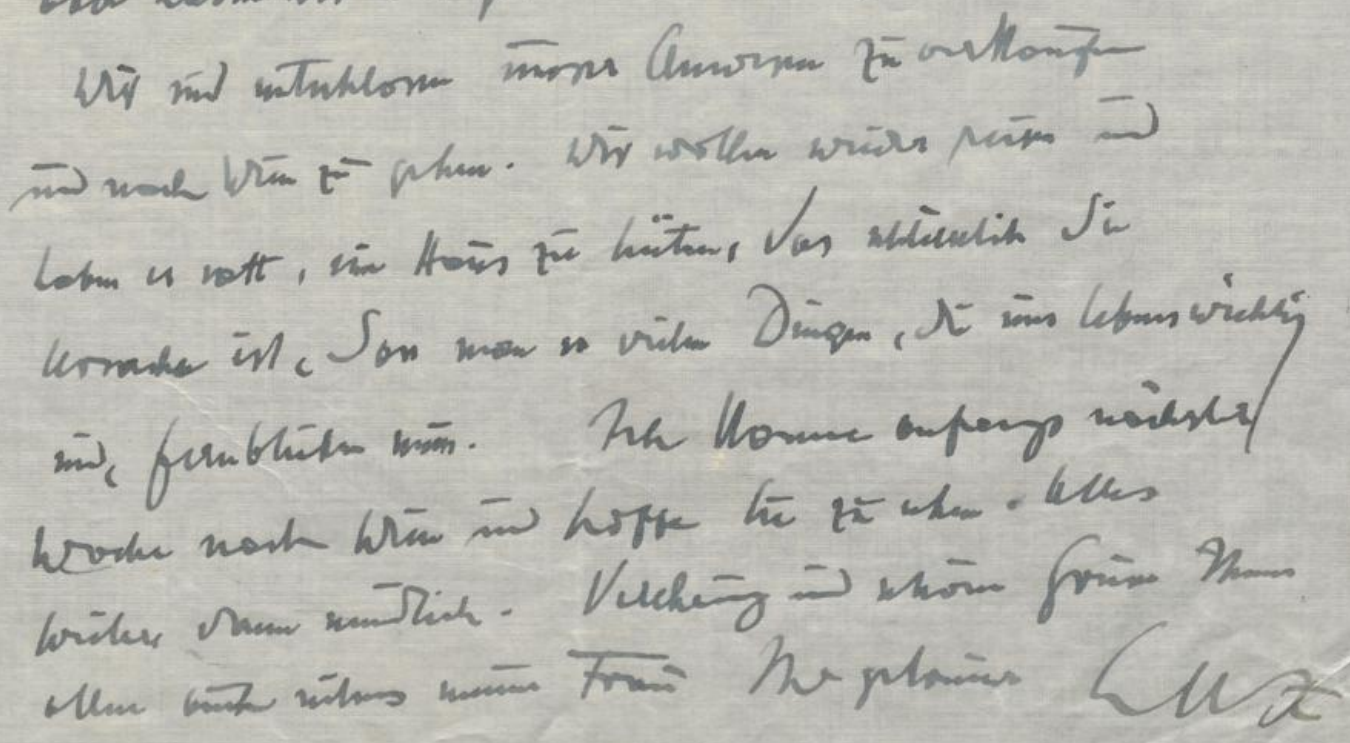 Wir sind entschlossen unser Anwesen zu verkaufen
und nach Wien zu gehen. Wir wollen wieder reisen und
haben es satt, ein Haus zu hüten, das schliesslich die
Ursache ist, dass man so vielen Dingen, die uns lebenswichtig
sind, fernbleiben muss. Ich komme anfangs nächster
Woche nach Wien und hoffe Sie zu sehen. Alles
weitere dann mündlich. Verehrung und schöne Grüsse Ihnen
allen auch seitens meiner Frau Ihr getreuer